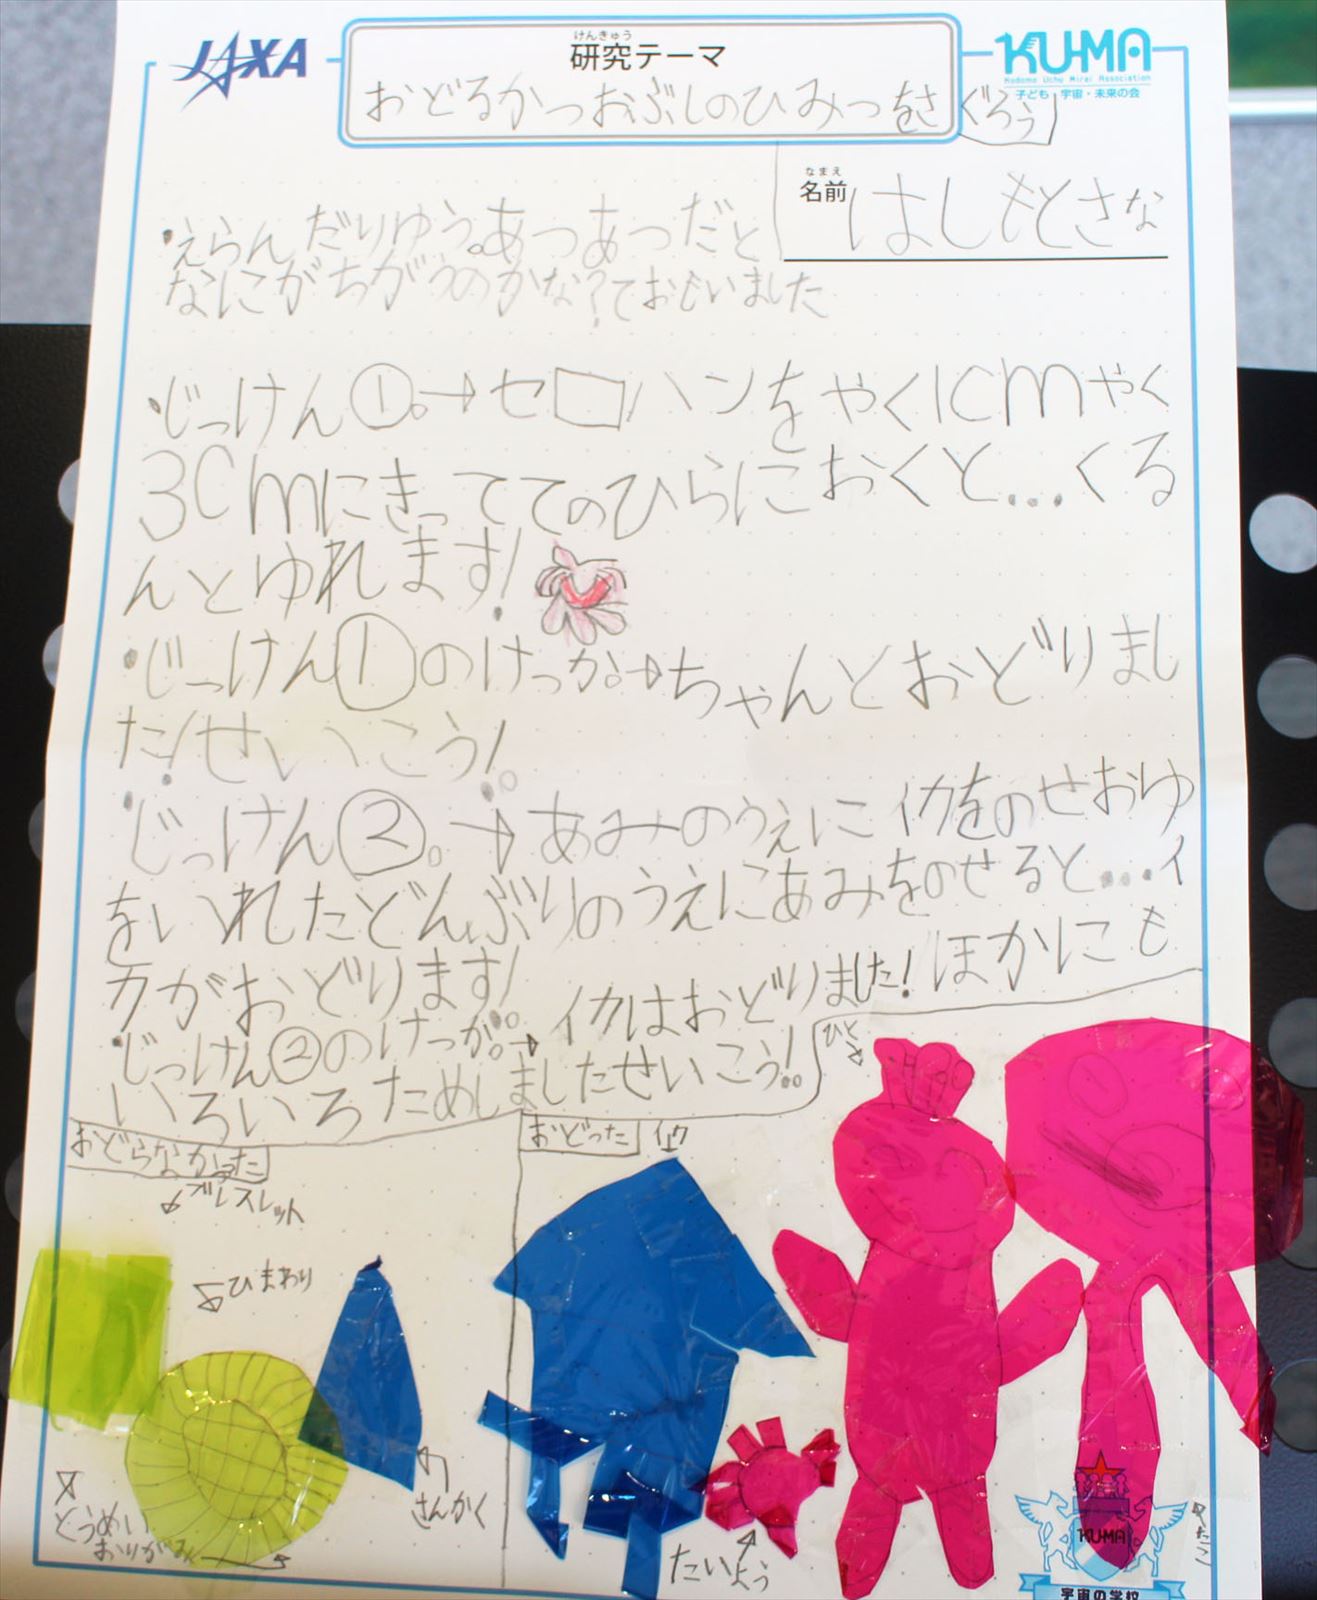 JAXA
けんきゅう
研究テーマ
KU-MA
Kodomo Uchu Mirai Association
子ども・宇宙・未来の会
おどるかつおぶしのひみつをさぐろう
なまえ
名前 はしもとさな
・えらんだりゆう。あつあつだと
なにがちがうのかな?ておもいました
・じっけん①。→セロハンをやく1cmやく
3cmにきっててのひらにおくと...くる
んとゆれます!
・じっけん①のけっか→ちゃんとおどりまし
た!せいこう!。
・じっけん②。→あみのうえにイカをのせおゆ
をいれたどんぶりのうえにあみをのせると...イ
カがおどります!
・じっけん②のけっか。→イカはおどりました!ほかにも
いろいろためしましたせいこう!
おどらなかった
ブレスレット
ひまわり
さんかく
とうめい
おりがみ
おどった
イカ
ひと
たいよう
たこ
KU-MA
宇宙の学校